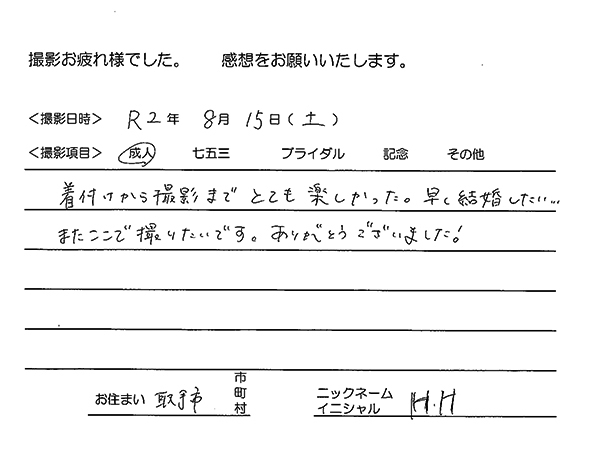 撮影お疲れ様でした。　感想をお願いいたします。
<撮影日時>　R2年　8月　15日(土)
<撮影項目>　成人　七五三　ブライダル　記念　その他
着付けから撮影までとても楽しかった。早く結婚したい…
またここで撮りたいです。ありがとうございました!
お住まい　取手市　市町村　ニックネーム イニシャル　H.H